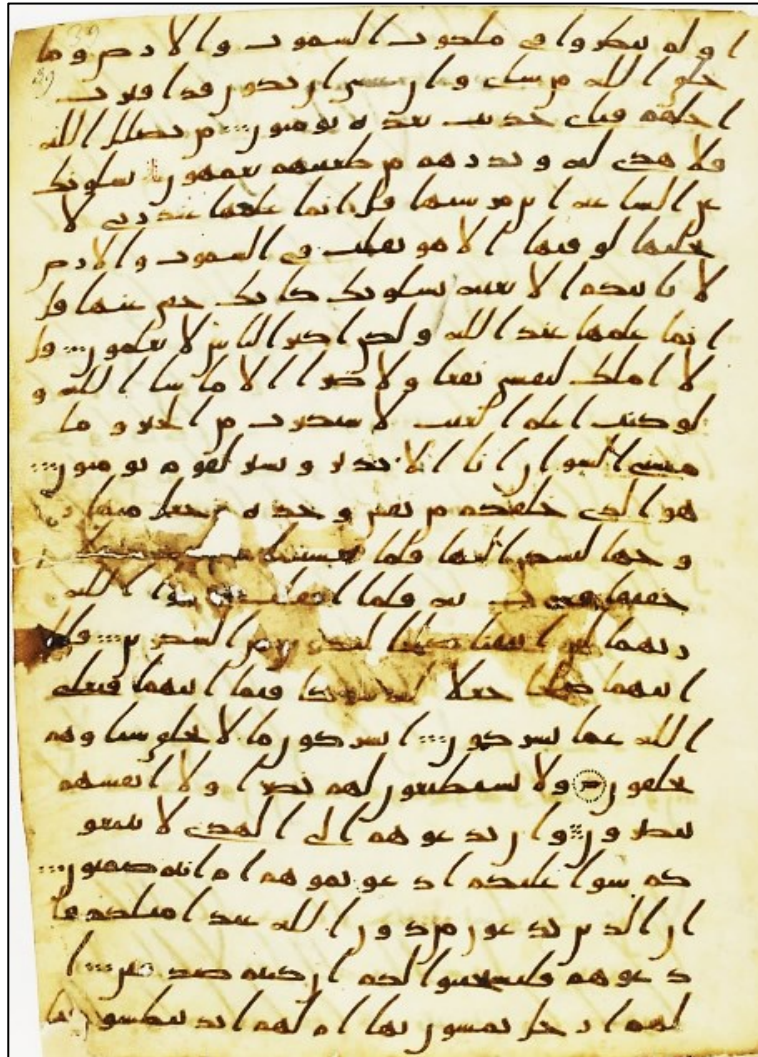 او لم ينظروا في ملكوت السموت والارض وما
خلق الله من شي وان عسى ان يكون قد اقترب
اجلهم فباي حديث بعده يومنون من يضلل الله
فلا هدي له ويذرهم في طغينهم يعمهون يسلونك
عن الساعه اين مرسيها قل انما علمها عند ربي لا
يجليها لوقتها الا هو ثقلت في السموت والارض
لا تاتيكم الا بغته يسلونك كانك حفي عنها قل
انما علمها عند الله ولكن اكثر الناس لا يعلمون قل
لا املك لنفسي نفعا ولا ضرا الا ما شا الله و
لو كنت اعلم الغيب لاستكثرت من الخير وما
مسني السو ان انا الا نذير وبشير لقوم يومنون
هو الذي خلقكم من نفس وحده وجعل منها ز
وجها ليسكن اليها فلما تغشيها
خفيفا فمرت به فلما اثقلت دعوا الله
ربهما لين اتيتنا صلحا لنكونن من الشكرين فلما
اتيهما صلحا جعلا له شركا فيما اتيهما فتعلى
الله عما يشركون ايشركون ما لا يخلق شيا وهم
يخلقون ولا يستطيعون لهم نصرا ولا انفسهم
ينصرون وان تدعوهم الى الهدى لا يتبعو
كم سوا عليكم ادعوتموهم ام انتم صمتون
ان الذين تدعون من دون الله عباد امثلكم فا
دعوهم فليستجيبوا لكم ان كنتم صدقين ا
لهم ارجل يمشون بها ام لهم ايد يبطشون بها